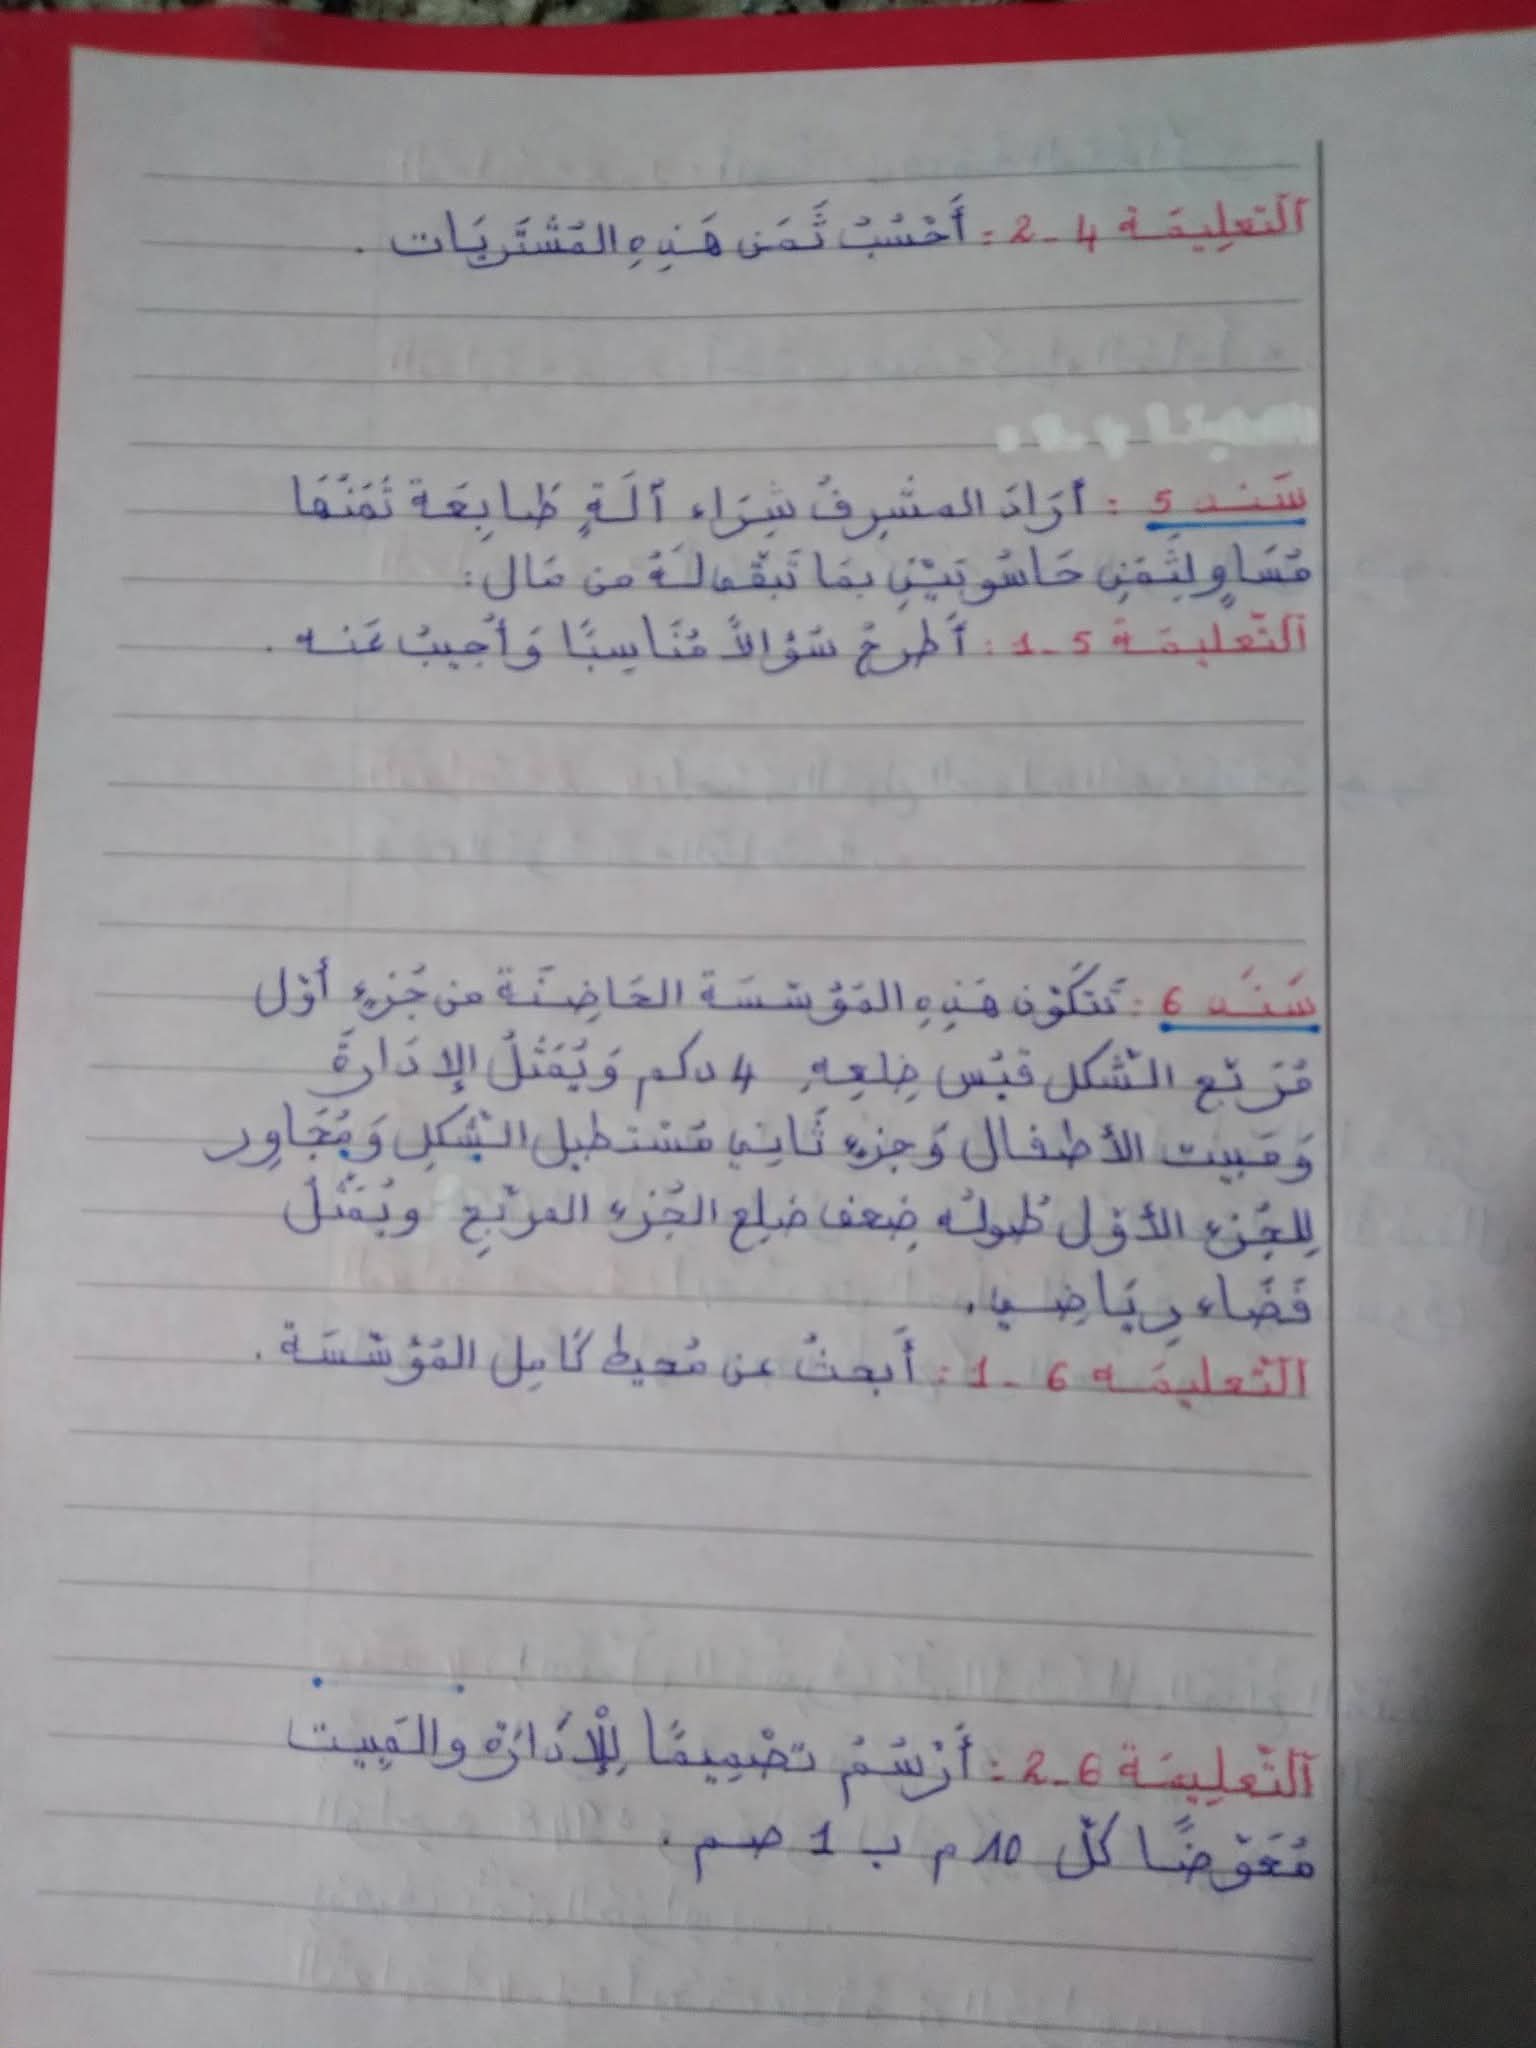 التعلِيمَة 4-2 : أَحْسُبُ ثَمَن هَذِهِ المُشْتَرِيَات .
سَند 5 : أرَادَ المشرِفُ شِرَاء آلَةٍ طَابِعَة ثَمَنُهَا
مُسَاوٍ لِثَمَنِ حَاسُوبَيْنِ بِمَا تَبَقّى لَهُ من مَال :
التّعلِيمَة 5-1 : أَطرحُ سُؤالاً مُنَاسِبًا وَأُجِيبُ عَنه .
سَنَد 6 : تَتكَوّن هَذِهِ المُؤسّسَة الحَاضِنَة من جُزءٍ أوّل
مُرَبّع الشّكل قيْس ضِلعِهِ 4 دكم وَيُمَثّلُ الإدَارَةَ
وَمَبِيت الأطفال وَجزءٍ ثَانِي مُستطيل الشّكلِ وَمُجَاوِر
لِلجُزء الأوّل طُولُه ضِعف ضلع الجُزء المربّع ويُمَثّلُ
فَضَاء رِيَاضِي .
التّعليمَة 6-1 : أَبحثُ عن مُحيط كَامِل المُؤسّسَة .
التّعلِيمَة 6-2 : أَرْسُمُ تصْمِيمًا لِلْإدَارَة والمَبِيت
مُعَوّضًا كلّ 10 م ب 1 صم .